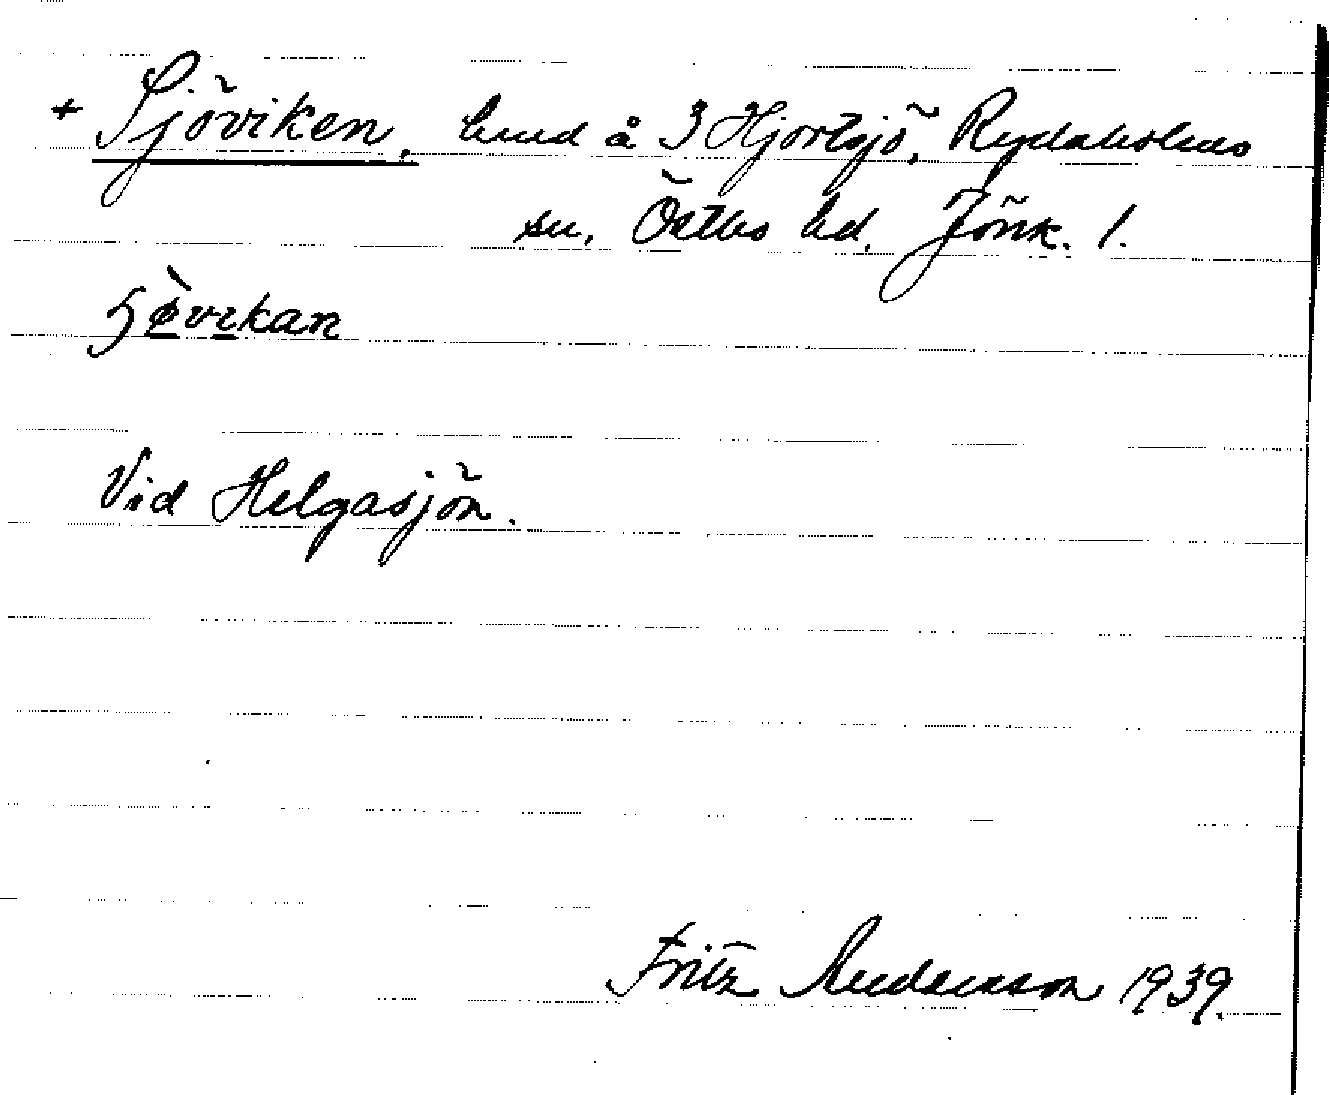 + Sjöviken, lund å 3 Hjortsjö, Rydaholms
sn, Östbo hd, Jönk. l.
ɧø̀vikan
Vid Helgasjön.
Fritz Andersson 1939.